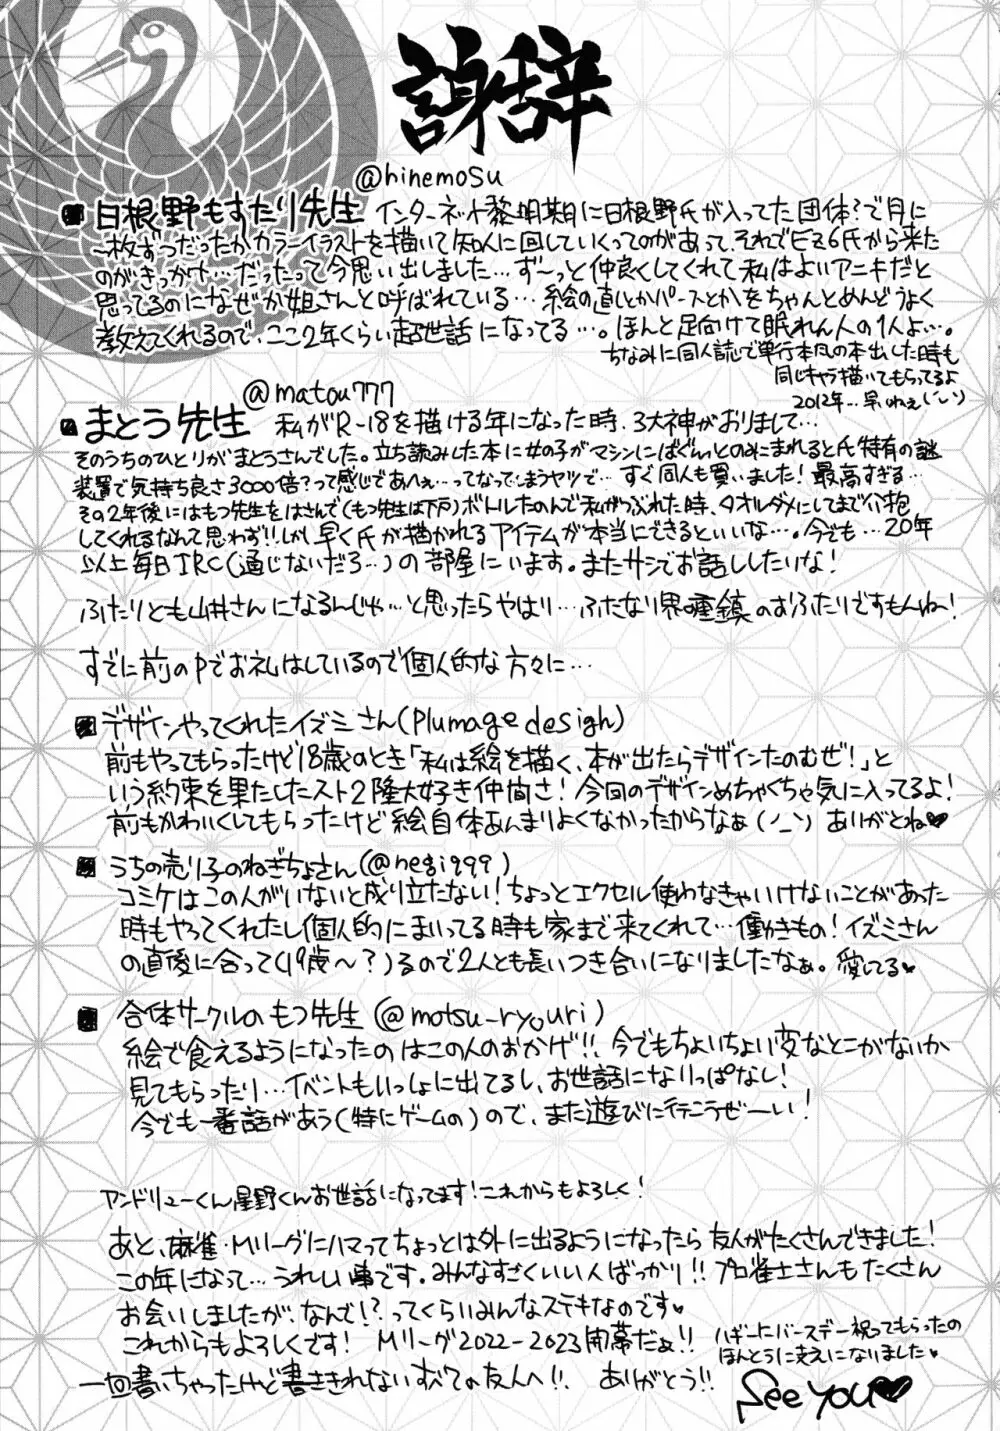 謝辞
@hinemosu
■白根野もすたり先生 インターネット黎明期に白根野氏が入ってた団体?で月に
一枚ずつだったかカラーイラストを描いて知人に回していくってのがあって、それでEZ6氏から来た
のがきっかけ…だったって今思い出しました…ず～っと仲良くしてくれて私はよいアニキだと
思ってるのになぜか姐さんと呼ばれている…絵の直しとかパースとかをちゃんとめんどうよく
教えてくれるので、ここ2年くらい超世話になってる…。ほんと足向けて眠れん人の1人よ…。
ちなみに同人誌で単行本風の本出した時も
同じキャラ描いてもらってるよ
2012年…早いねぇ
@matou777
■まとう先生 私がR-18を描ける年になった時、3大神がおりまして…
そのうちのひとりがまとうさんでした。立ち読みした本に女の子がマシンにばぐんっとのみこまれると氏特有の謎
装置で気持ち良さ3000倍?って感じであへぇ…ってなってしまうヤツで…すぐ同人も買いました!最高すぎる…
その2年後にはもつ先生をはさんで(もつ先生は下戸)ボトルたのんで私がつぶれた時、タオルダメにしてまで介抱
してくれるなんて思わず!!しかし早く氏が描かれるアイテムが本当にできるといいな…。今でも…20年
以上毎日IRC(通じないだろ…)の部屋にいます。またサシでお話ししたいな!
ふたりとも山井さんになるんじゃ…と思ったらやはり…ふたなり界の重鎮のおふたりですもんね!
すでに前のPでお礼はしているので個人的な方々に…
■デザインやってくれたイズミさん(Plumage design)
前もやってもらったけど18歳のとき「私は絵を描く、本が出たらデザインたのむぜ!」と
いう約束を果たしたスト2隆大好き仲間さ!今回のデザインめちゃくちゃ気に入ってるよ!
前もかわいくしてもらったけど絵自体あんまりよくなかったからなぁ(ノ_ヽ) ありがとね♥
■うちの売り子のねぎちょさん(@negi999)
コミケはこの人がいないと成り立たない!ちょっとエクセル使わなきゃいけないことがあった
時もやってくれたし個人的にまいってる時も家まで来てくれて…働きもの!イズミさん
の直後に合って(19歳～?)るので2人とも長いつき合いになりましたなぁ。愛してる♥
■合体サークルのもつ先生(@motsu_ryouri)
絵で食えるようになったのはこの人のおかげ!!今でもちょいちょい変なとこがないか
見てもらったり…イベントもいっしょに出てるし、お世話になりっぱなし!
今でも一番話があう(特にゲームの)ので、また遊びに行こうぜーい!
アンドリューくん星野くんお世話になってます!これからもよろしく!
あと、麻雀・Mリーグにハマってちょっとは外に出るようになったら友人がたくさんできました!
この年になって…うれしい事です。みんなすごくいい人ばっかり!!プロ雀士さんもたくさん
お会いしましたが、なんで!?ってくらいみんなステキなのです♥
これからもよろしくです! Mリーグ2022-2023開幕だぁ!!
ハギーにバースデー祝ってもらったの
ほんとうに支えになりました♥
一回書いちゃったけど書ききれないすべての友人へ!! ありがとう!!
See you♥